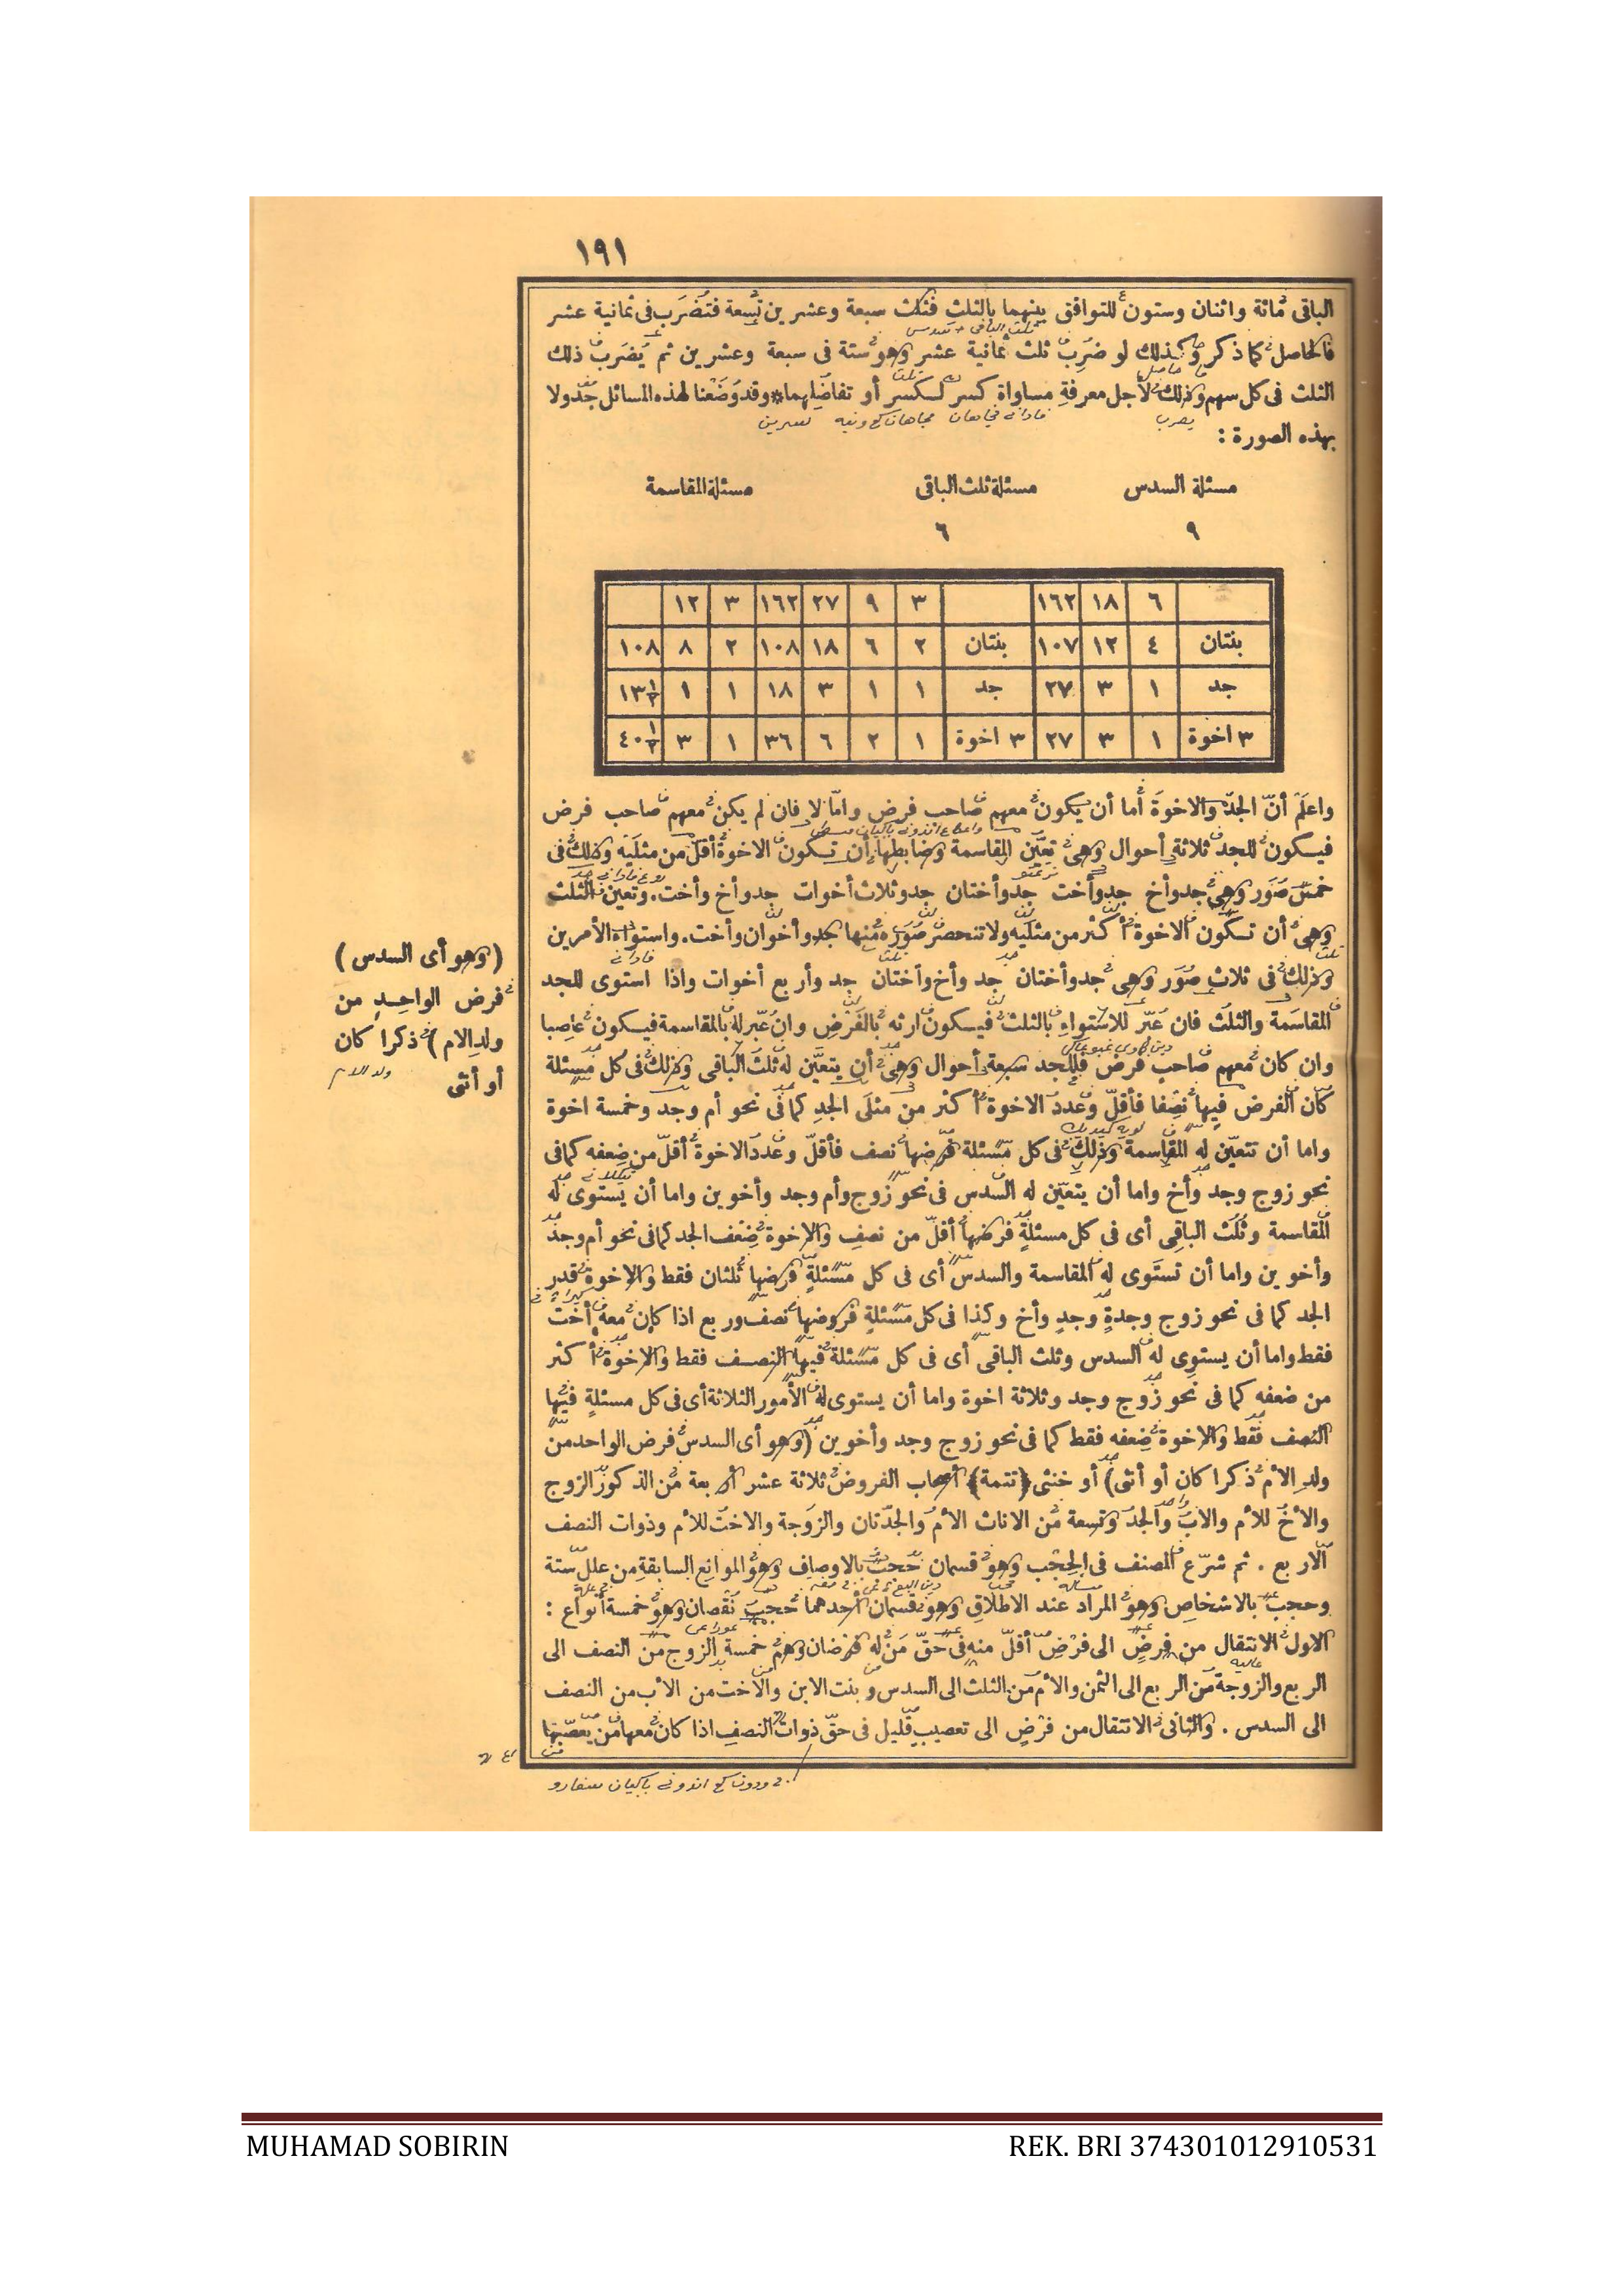 ١٩١
الباقى مائة واثنان وستون للتوافق بينهما بالثلث فثلث سبعة وعشرين تسعة فتضرب فى ثمانية عشر
فالحاصل كما ذكر وكذلك لو ضرب ثلث ثمانية عشر وهو ستة فى سبعة وعشرين ثم يضرب ذلك
الثلث فى كل سهم وذلك لأجل معرفة مساواة كسر لكسر أو تفاضلهما * وقد وضعنا لهذه المسائل جدولا
بهذه الصورة :
مسئلة السدس مسئلة ثلث الباقى مسئلة المقاسمة
٩ ٦
٦ ١٨ ١٦٢ ٣ ٩ ٢٧ ١٦٢ ٣ ١٢
بنتان ٤ ١٢ ١٠٧ بنتان ٢ ٦ ١٨ ١٠٨ ٢ ٨ ١٠٨
جد ١ ٣ ٢٧ جد ١ ١ ٣ ١٨ ١ ١
٣ اخوة ١ ٣ ٢٧ ٣ اخوة ١ ٢ ٦ ٣٦ ١ ٣
واعلم أنّ الجدّ والاخوة أما أن يكون معهم صاحب فرض وامّا لا فان لم يكن معهم صاحب فرض
فيكون للجد ثلاثة أحوال وهى تعيّن المقاسمة وضابطها أن تكون الاخوة أقلّ من مثليه وذلك فى
خمس صور وهى جد وأخ جد وأخت جد وأختان جد وثلاث أخوات جد وأخ وأخت. وتعين الثلث
وهى أن تكون الاخوة أكثر من مثليه ولا تنحصر صوره منها جد وأخوان وأخت. واستواء الأمرين
وذلك فى ثلاث صور وهى جد وأختان جد وأخ وأختان جد وأربع أخوات واذا استوى للجد
المقاسمة والثلث فان عبّر للاستواء بالثلث فيكون ارثه بالفرض وان عبّر له بالمقاسمة فيكون عاصبا
وان كان معهم صاحب فرض فللجد سبعة أحوال وهى أن يتعيّن له ثلث الباقى وذلك فى كل مسئلة
كان الفرض فيها نصفا فأقلّ وعدد الاخوة أكثر من مثلى الجد كما فى نحو أم وجد وخمسة اخوة
واما أن تتعيّن له المقاسمة وذلك فى كل مسئلة فرضها نصف فأقلّ وعدد الاخوة أقلّ من ضعفه كما فى
نحو زوج وجد وأخ واما أن يتعيّن له السدس فى نحو زوج وأم وجد وأخوين واما أن يستوى له
المقاسمة وثلث الباقى أى فى كل مسئلة فرضها أقلّ من نصف والاخوة ضعف الجد كما فى نحو أم وجد
وأخوين واما أن تستوى له المقاسمة والسدس أى فى كل مسئلة فرضها ثلثان فقط والاخوة قدر
الجد كما فى نحو زوج وجدة وجد وأخ وكذا فى كل مسئلة فروضها نصف وربع اذا كان معه أخت
فقط واما أن يستوى له السدس وثلث الباقى أى فى كل مسئلة فيها النصف فقط والاخوة أكثر
من ضعفه كما فى نحو زوج وجد وثلاثة اخوة واما أن يستوى له الأمور الثلاثة أى فى كل مسئلة فيها
النصف فقط والاخوة ضعفه فقط كما فى نحو زوج وجد وأخوين (وهو أى السدس فرض الواحد من
ولد الأم ذكرا كان أو أنثى) أو خنثى ﴿تتمة﴾ أصحاب الفروض ثلاثة عشر أربعة من الذكور الزوج
والأخ للأم والاب والجد وتسعة من الاناث الأم والجدّتان والزوجة والاخت للأم وذوات النصف
الأربع . ثم شرّع المصنف فى الحجب وهو قسمان حجب بالاوصاف وهو الموانع السابقة من علل ستة
وحجب بالاشخاص وهو المراد عند الاطلاق وهو قسمان أحدهما حجب نقصان وهو خمسة أنواع :
الاول الانتقال من فرض الى فرض أقلّ منه فى حقّ من له فرضان وهم خمسة الزوج من النصف الى
الربع والزوجة من الربع الى الثمن والأم من الثلث الى السدس وبنت الابن والأخت من الأب من النصف
الى السدس . والثانى الانتقال من فرض الى تعصيب قليل فى حقّ ذوات النصف اذا كان معها من يعصّبها
(وهو أى السدس)
فرض الواحد من
ولد الام) ذكرا كان
أو أنثى
ولد الام
MUHAMAD SOBIRIN REK. BRI 374301012910531